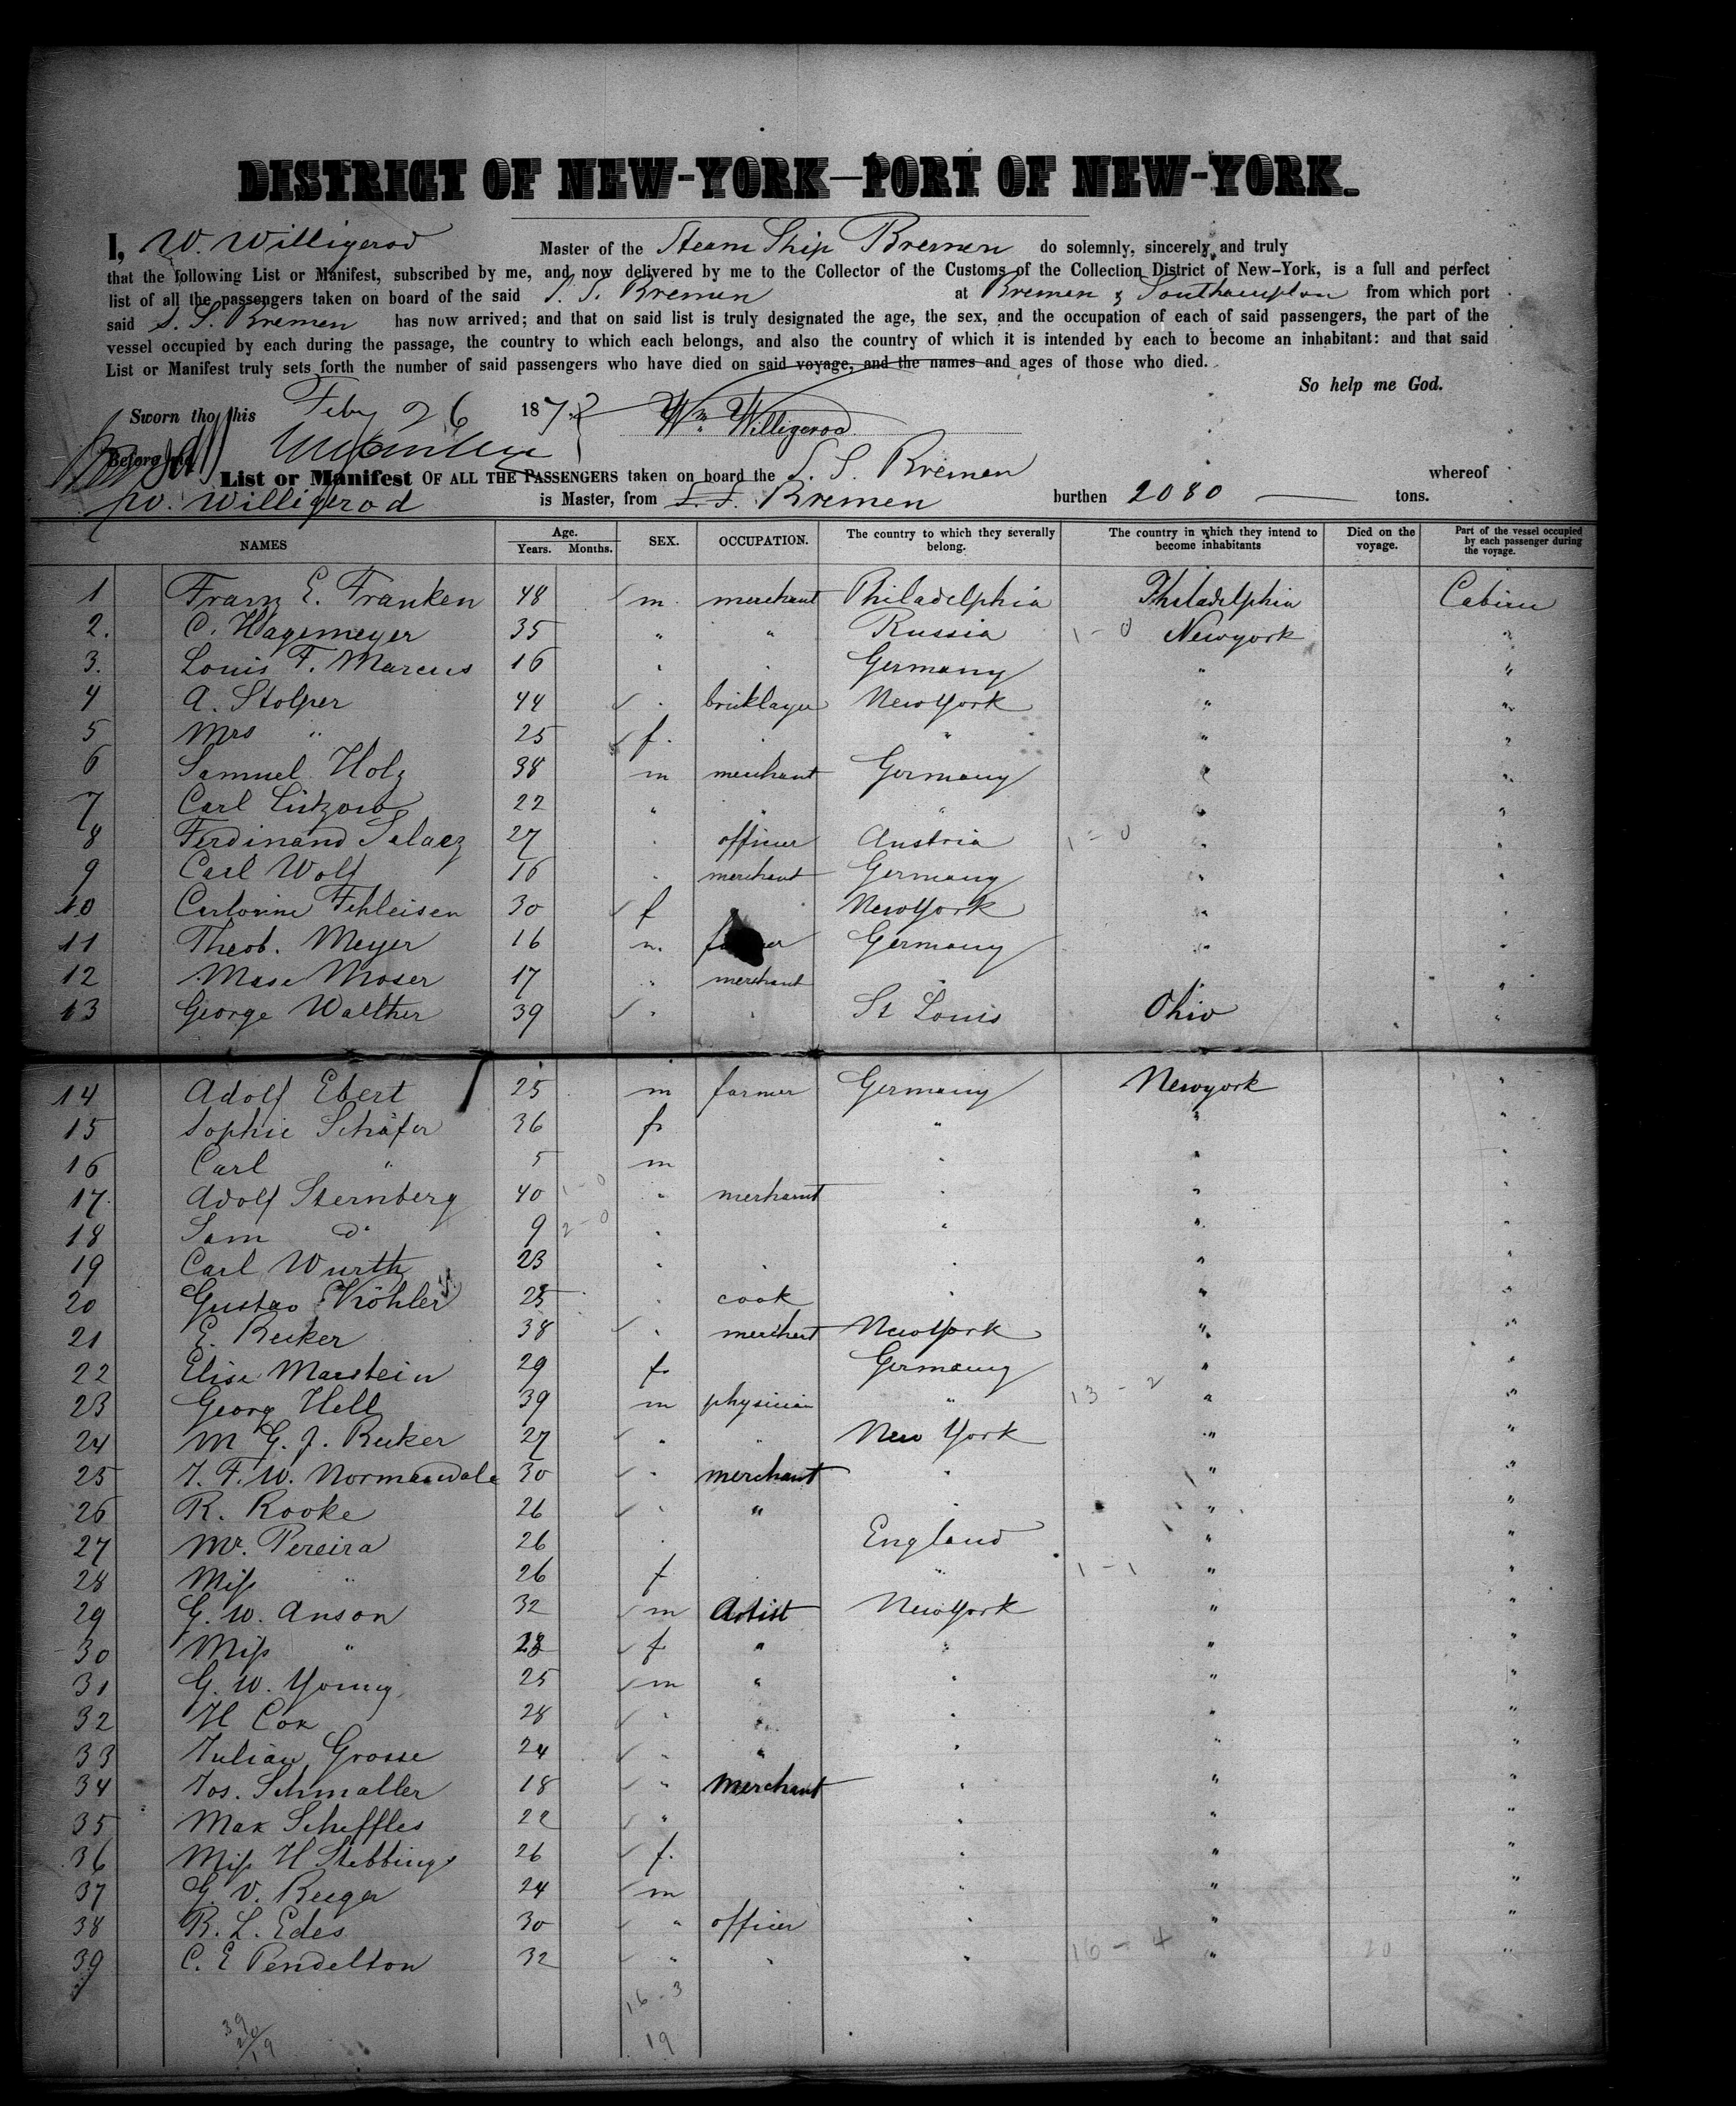 DISTRICT OF NEW-YORK—PORT OF NEW-YORK.
I, W. Willigerod Master of the Steam Ship Bremen do solemnly, sincerely and truly
that the following List or Manifest, subscribed by me, and now delivered by me to the Collector of the Customs of the Collection District of New-York, is a full and perfect
list of all the passengers taken on board of the said S. S. Bremen at Bremen & Southampton from which port
said S. S. Bremen has now arrived; and that on said list is truly designated the age, the sex, and the occupation of each of said passengers, the part of the
vessel occupied by each during the passage, the country to which each belongs, and also the country of which it is intended by each to become an inhabitant: and that said
List or Manifest truly sets forth the number of said passengers who have died on said voyage, and the names and ages of those who died.
So help me God.
Sworn tho this Feby 26 1872 Wm Willigerod
Before me
List or Manifest OF ALL THE PASSENGERS taken on board the S. S. Bremen whereof
W. Willigerod is Master, from S. S. Bremen burthen 2080 tons.
NAMES Age. Years. Months. SEX. OCCUPATION. The country to which they severally belong. The country in which they intend to become inhabitants Died on the voyage. Part of the vessel occupied by each passenger during the voyage.
1 Franz E. Franken 48 m. merchant Philadelphia Philadelphia Cabin
2. C. Hagemeyer 35 " " Russia 1-0 Newyork "
3. Louis F. Marcus 16 " " Germany " "
4 A. Stolper 44 " bricklayer New York " "
5 Mrs " 25 f. " " " "
6 Samuel Holz 38 m merchant Germany " "
7 Carl Lützow 22 " " " " "
8 Ferdinand 27 " officer Austria 1-0 " "
9 Carl Wolf 16 " merchant Germany " "
10 Fehleisen 30 f New York " "
11 Theob. Meyer 16 m. farmer Germany " "
12 Moser 17 " merchant " " "
13 George Walther 39 " " St Louis Ohio "
14 Adolf Ebert 25 m farmer Germany Newyork "
15 Sophie Schäfer 36 f. " " "
16 Carl " 5 m " " "
17. Adolf Sternberg 40 1-0 " merchant " " "
18 Sam do 9 2-0 " " " "
19 Carl Wurth 23 " " " " "
20 Gustav Köhler 25 " cook " " "
21 E. Reiker 38 " merchant New York " "
22 Elise Marstein 29 f. Germany " "
23 Georg Hell 39 m physician " 13-2 " "
24 M G. J. Reiker 27 " " New York " "
25 J. F. W. Normandale 30 " merchant " " "
26 R. Rooke 26 " " " " "
27 Mr. Pereira 26 " England " "
28 Miss " 26 f " " 1-1 " "
29 G. W. Anson 32 m Artist New York " "
30 Miss " 28 f " " " "
31 G. W. Young 25 m " " " "
32 H Cox 28 " " " " "
33 Julian Grosse 24 " " " " "
34 Jos. Schmaller 18 " Merchant " " "
35 Max Scheffles 22 " " " "
36 Miss H Stebbings 26 f. " " "
37 G. V. Reeger 24 m " " "
38 R. L. Edes 30 " officer " " "
39 C. E Pendelton 32 " " " 16-4 " 20 "
16-3
39
20
19
19